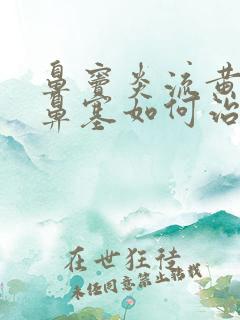 鼻窦炎流黄
鼻塞如何治
在世狂徒
未经同意禁止转载